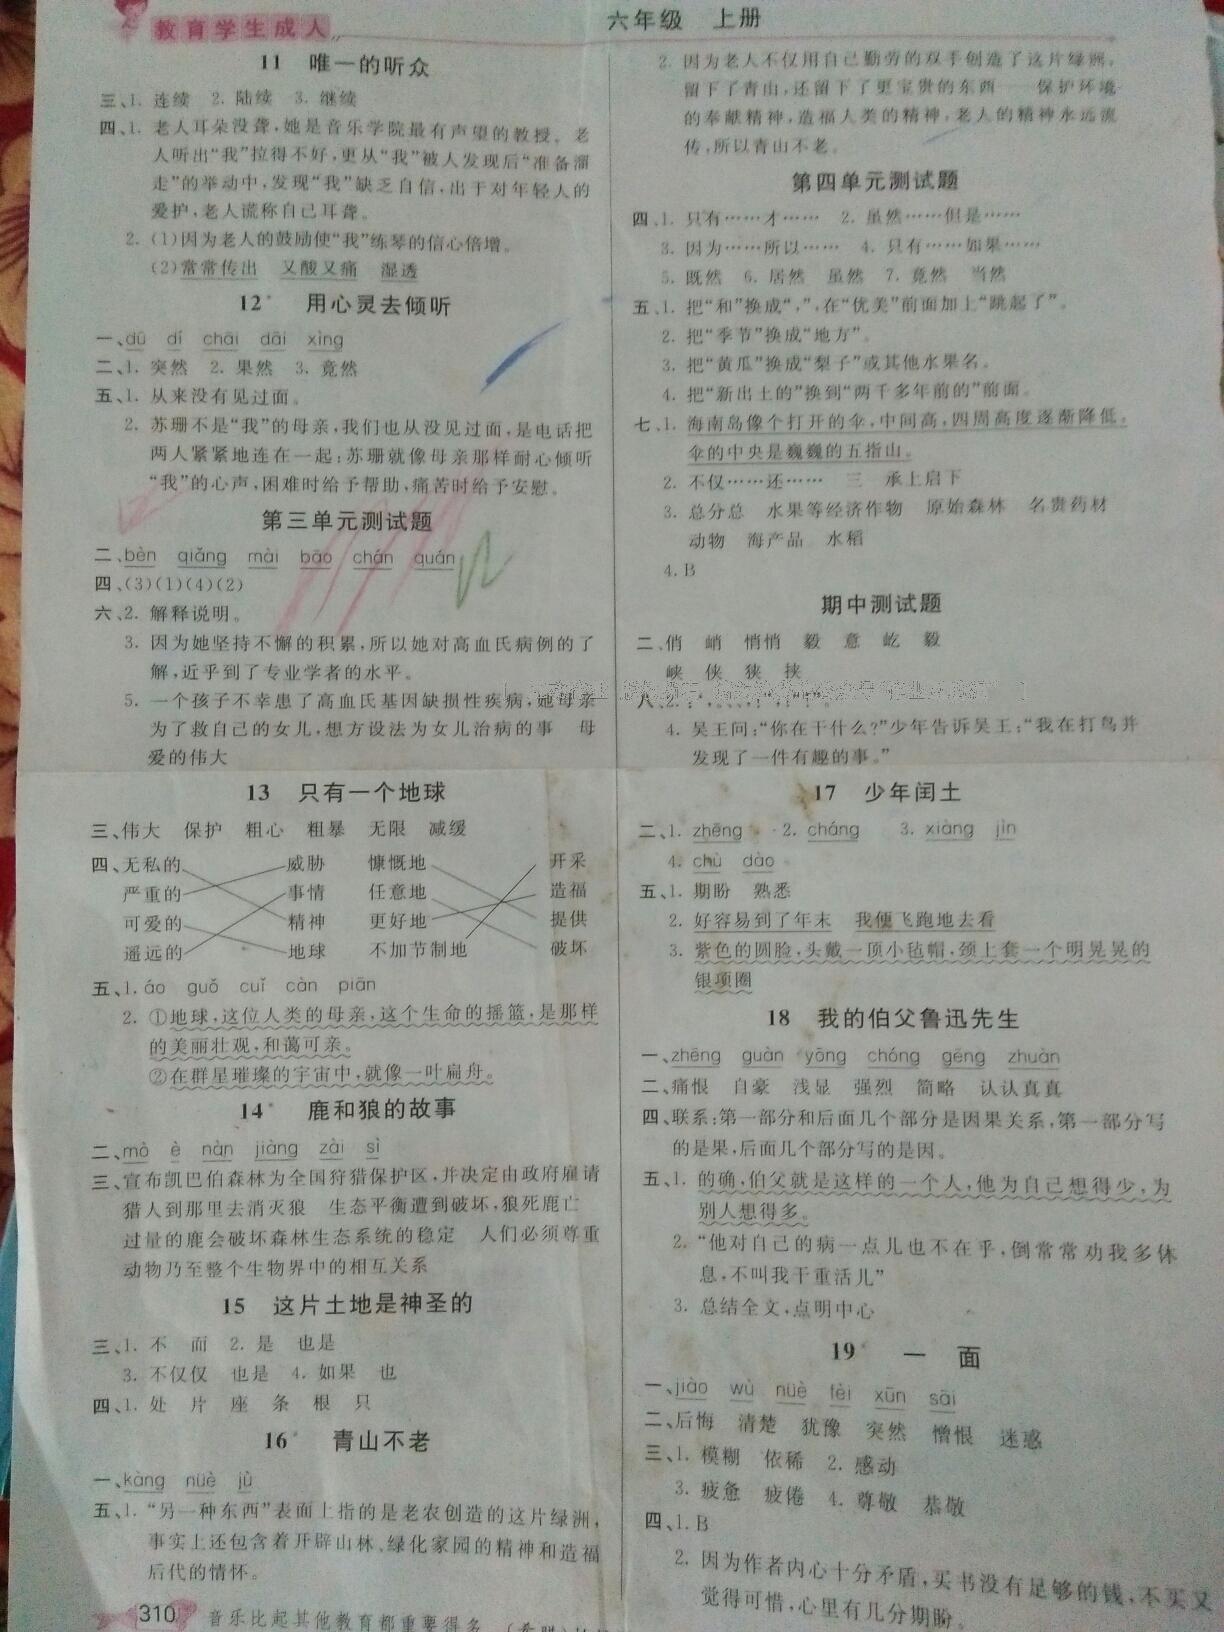 教育学生成人
六年级 上册
11 唯一的听众
三、1. 连续 2. 陆续 3. 继续
四、1. 老人耳朵没聋,她是音乐学院最有声望的教授。老
人听出“我”拉得不好,更从“我”被人发现后“准备溜
走”的举动中,发现“我”缺乏自信,出于对年轻人的
爱护,老人谎称自己耳聋。
2. (1)因为老人的鼓励使“我”练琴的信心倍增。
(2)常常传出 又酸又痛 湿透
12* 用心灵去倾听
一、dū dí chāi dāi xìng
二、1. 突然 2. 果然 3. 竟然
五、1. 从来没有见过面。
2. 苏珊不是“我”的母亲,我们也从没见过面,是电话把
两人紧紧地连在一起;苏珊就像母亲那样耐心倾听
“我”的心声,困难时给予帮助,痛苦时给予安慰。
第三单元测试题
二、bèn qiǎng mài bāo chán quán
四、(3)(1)(4)(2)
六、2. 解释说明。
3. 因为她坚持不懈的积累,所以她对高血氏病例的了
解,近乎到了专业学者的水平。
5. 一个孩子不幸患了高血氏基因缺损性疾病,她母亲
为了救自己的女儿,想方设法为女儿治病的事 母
爱的伟大
13 只有一个地球
三、伟大 保护 粗心 粗暴 无限 减缓
四、无私的 威胁 慷慨地 开采
严重的 事情 任意地 造福
可爱的 精神 更好地 提供
遥远的 地球 不加节制地 破坏
五、1. áo guǒ cuǐ càn piān
2. ①地球,这位人类的母亲,这个生命的摇篮,是那样
的美丽壮观,和蔼可亲。
②在群星璀璨的宇宙中,就像一叶扁舟。
14* 鹿和狼的故事
二、mò è nàn jiàng zài sì
三、宣布凯巴伯森林为全国狩猎保护区,并决定由政府雇请
猎人到那里去消灭狼 生态平衡遭到破坏,狼死鹿亡
过量的鹿会破坏森林生态系统的稳定 人们必须尊重
动物乃至整个生物界中的相互关系
15 这片土地是神圣的
三、1. 不 而 2. 是 也是
3. 不仅仅 也是 4. 如果 也
四、1. 处 片 座 条 根 只
16* 青山不老
一、kàng nüè jù
五、1. “另一种东西”表面上指的是老农创造的这片绿洲,
事实上还包含着开辟山林、绿化家园的精神和造福
后代的情怀。
310 音乐比起其他教育都重要得多。
2. 因为老人不仅用自己勤劳的双手创造了这片绿洲,
留下了青山,还留下了更宝贵的东西——保护环境
的奉献精神,造福人类的精神,老人的精神永远流
传,所以青山不老。
第四单元测试题
四、1. 只有……才…… 2. 虽然……但是……
3. 因为……所以…… 4. 只有……如果……
5. 既然 6. 居然 虽然 7. 竟然 当然
五、1. 把“和”换成“,”,在“优美”前面加上“跳起了”。
2. 把“季节”换成“地方”。
3. 把“黄瓜”换成“梨子”或其他水果名。
4. 把“新出土的”换到“两千多年前的”前面。
七、1. 海南岛像个打开的伞,中间高,四周高度逐渐降低。
伞的中央是巍巍的五指山。
2. 不仅……还…… 三 承上启下
3. 总分总 水果等经济作物 原始森林 名贵药材
动物 海产品 水稻
4. B
期中测试题
二、俏 峭 悄悄 毅 意 屹 毅
峡 侠 狭 挟
八、2.
4. 吴王问:“你在干什么?”少年告诉吴王:“我在打鸟并
发现了一件有趣的事。”
17 少年闰土
二、1. zhēng 2. cháng 3. xiàng jìn
4. chù dào
五、1. 期盼 熟悉
2. 好容易到了年末 我便飞跑地去看
3. 紫色的圆脸,头戴一顶小毡帽,颈上套一个明晃晃的
银项圈
18 我的伯父鲁迅先生
一、zhēng guàn yōng chóng gēng zhuàn
二、痛恨 自豪 浅显 强烈 简略 认认真真
四、联系:第一部分和后面几个部分是因果关系,第一部分写
的是果,后面几个部分写的是因。
五、1. 的确,伯父就是这样的一个人,他为自己想得少,为
别人想得多。
2. “他对自己的病一点儿也不在乎,倒常常劝我多休
息,不叫我干重活儿”
3. 总结全文,点明中心
19* 一 面
一、jiào wù nüè fèi xūn sāi
二、后悔 清楚 犹豫 突然 憎恨 迷惑
三、1. 模糊 依稀 2. 感动
3. 疲惫 疲倦 4. 尊敬 恭敬
四、1. B
2. 因为作者内心十分矛盾,买书没有足够的钱,不买又
觉得可惜,心里有几分期盼。